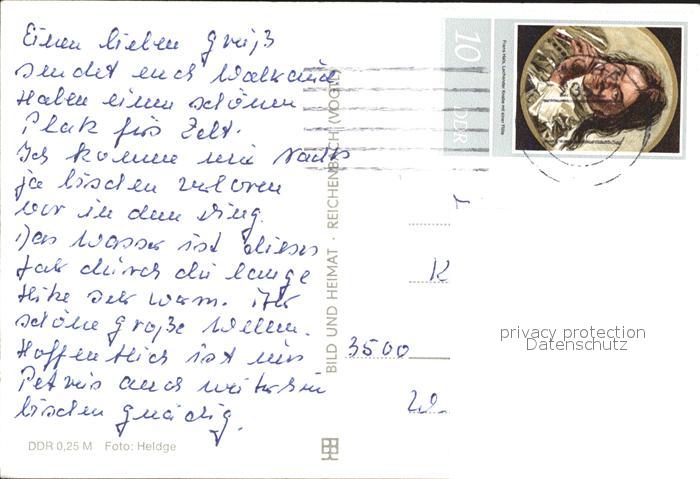 Einen lieben Gruß
sendet euch Waltraud
Haben einen schönen
Platz fürs Zelt.
Ich komme mir Nachts
ja bischen verloren
vor in dem Ding.
Das Wasser ist dieses
Jahr durch die lange
Hitze sehr warm.
schöne große Wellen.
Hoffentlich ist uns
Petrus auch weiterhin
bischen gnädig.
DDR 0,25 M Foto: Heldge
BILD UND HEIMAT · REICHENBACH (VOGTL)
10
DDR
Frans Hals, Lachender Knabe mit einer Flöte
K
3500
privacy protection
Datenschutz